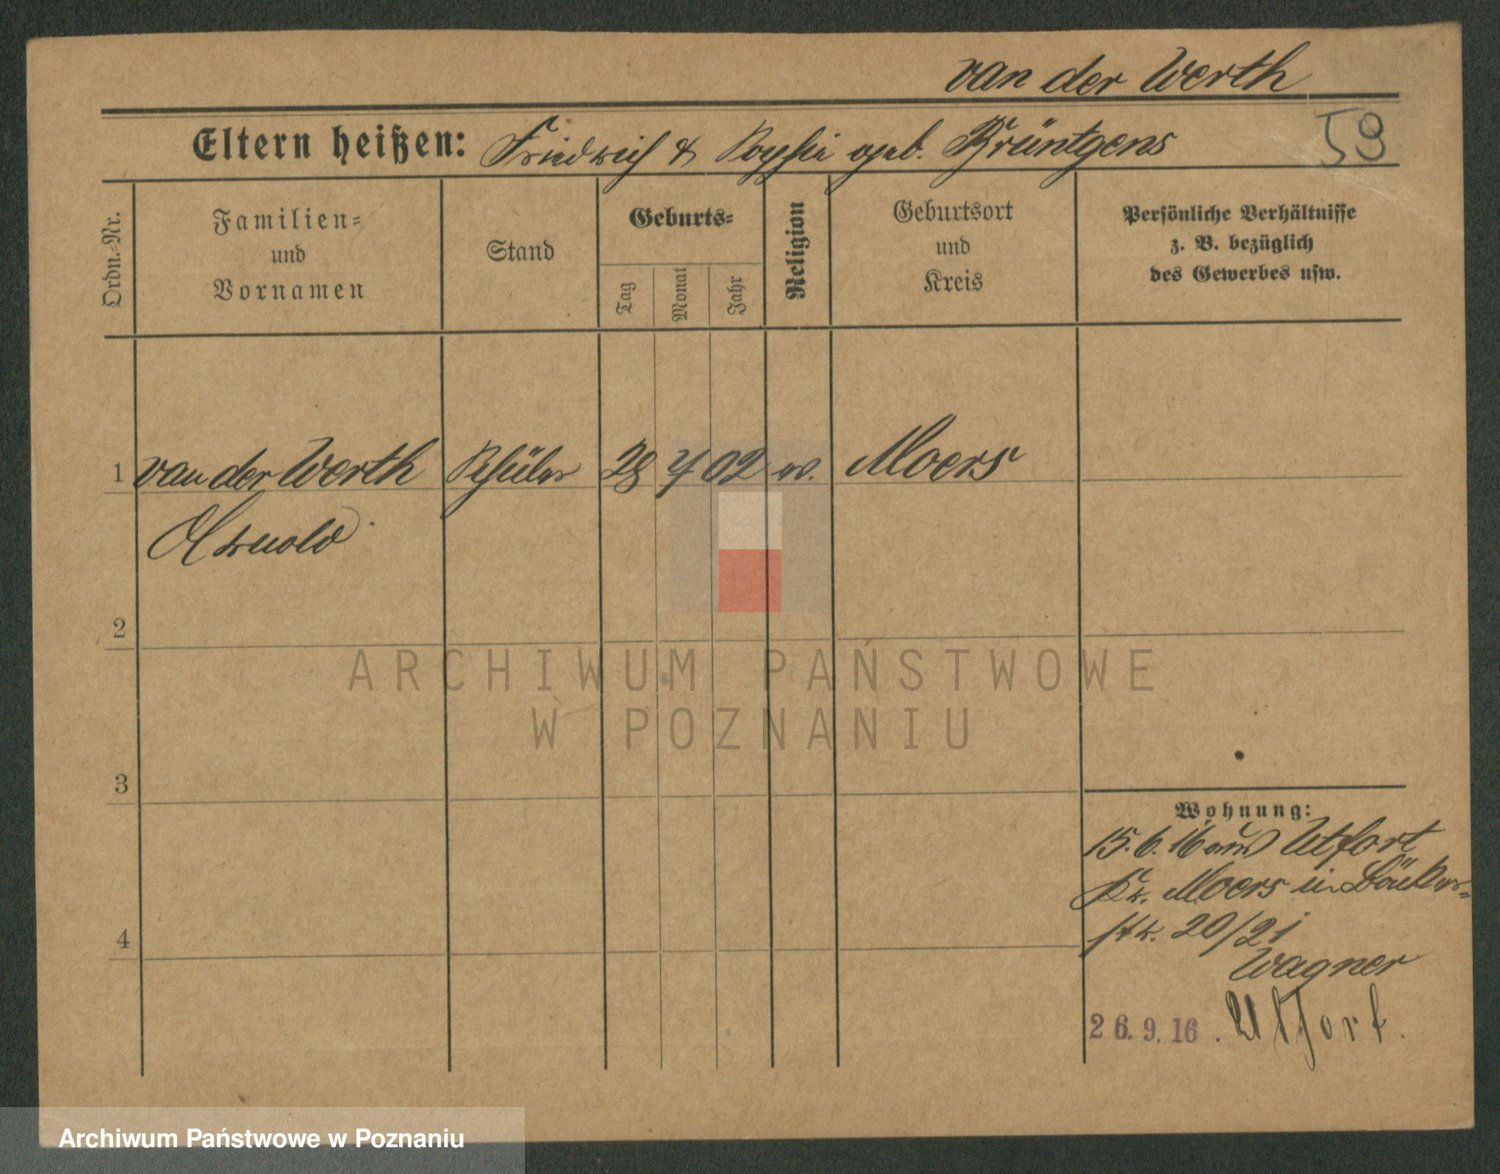 van der Werth
Eltern heißen: Friedrich & Sophie geb. Brüntgens
59
Ordn.-Nr.
Familien-
und
Vornamen
Stand
Geburts-
Tag
Monat
Jahr
Religion
Geburtsort
und
Kreis
Persönliche Verhältnisse
z. B. bezüglich
des Gewerbes usw.
1 van der Werth Schüler 28 7 02 ev. Moers
Arnold
2
ARCHIWUM PAŃSTWOWE
W POZNANIU
3
Wohnung:
15.6.16 aus Utfort
Kr. Moers in Bäcker-
str. 20/21
4
Wagner
26.9.16. Utfort.
Archiwum Państwowe w Poznaniu